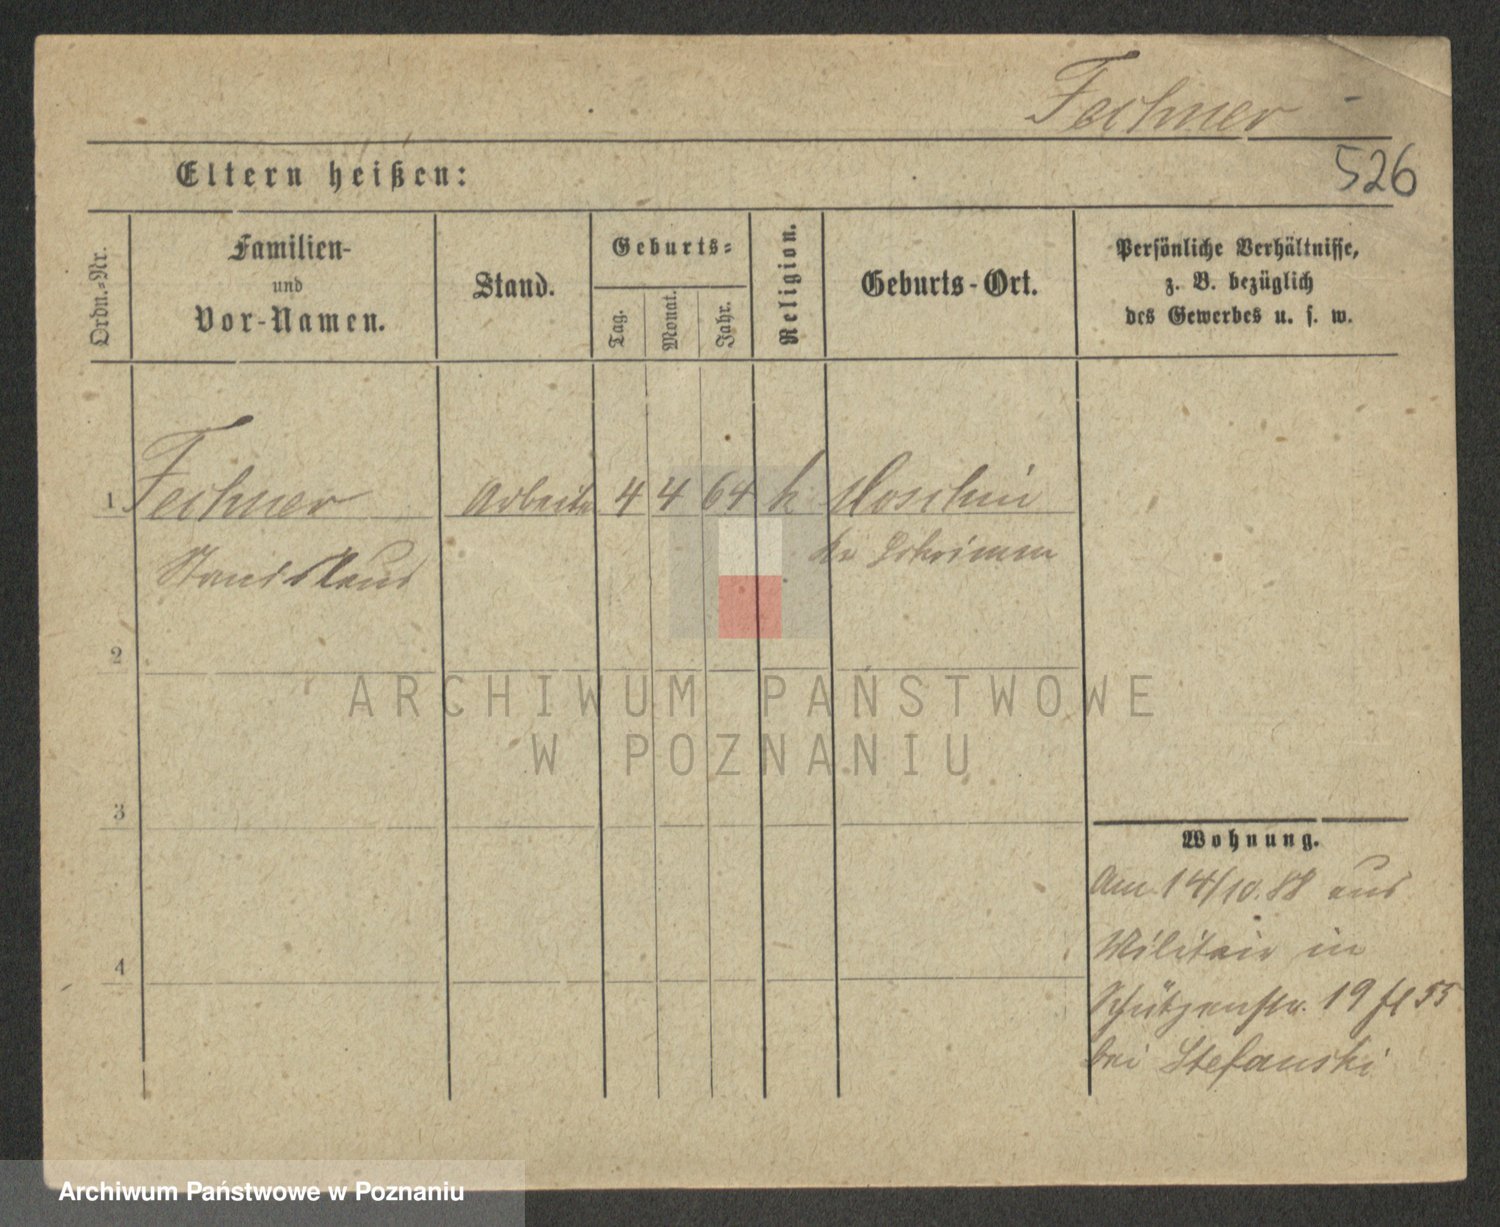 Fechner
526
Eltern heißen:
Ordn.-Nr.
Familien-
und
Vor-Namen.
Stand.
Geburts-
Tag.
Monat.
Jahr.
Religion.
Geburts-Ort.
Persönliche Verhältnisse,
z. B. bezüglich
des Gewerbes u. s. w.
1 Fechner Arbeiter 4 4 64 k Moschin
Stanislaus Kr Schrimm
2
3
4
Wohnung.
Am 14/10.88 aus
Militair in
Schützenstr. 19 55
bei Stefanski
ARCHIWUM PAŃSTWOWE
W POZNANIU
Archiwum Państwowe w Poznaniu